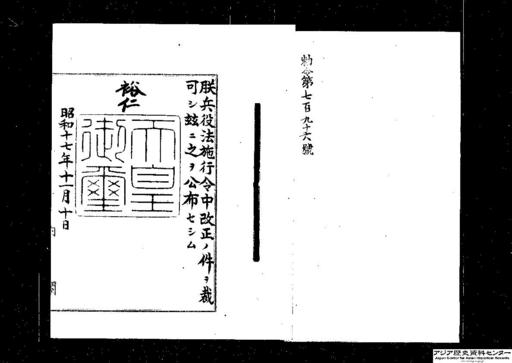 勅令第七百九十六號
朕兵役法施行令中改正ノ件ヲ裁
可シ玆ニ之ヲ公布セシム
裕仁
天皇
御璽
昭和十七年十一月十日
内
閣
アジア歴史資料センター
Japan Center for Asian Historical Records